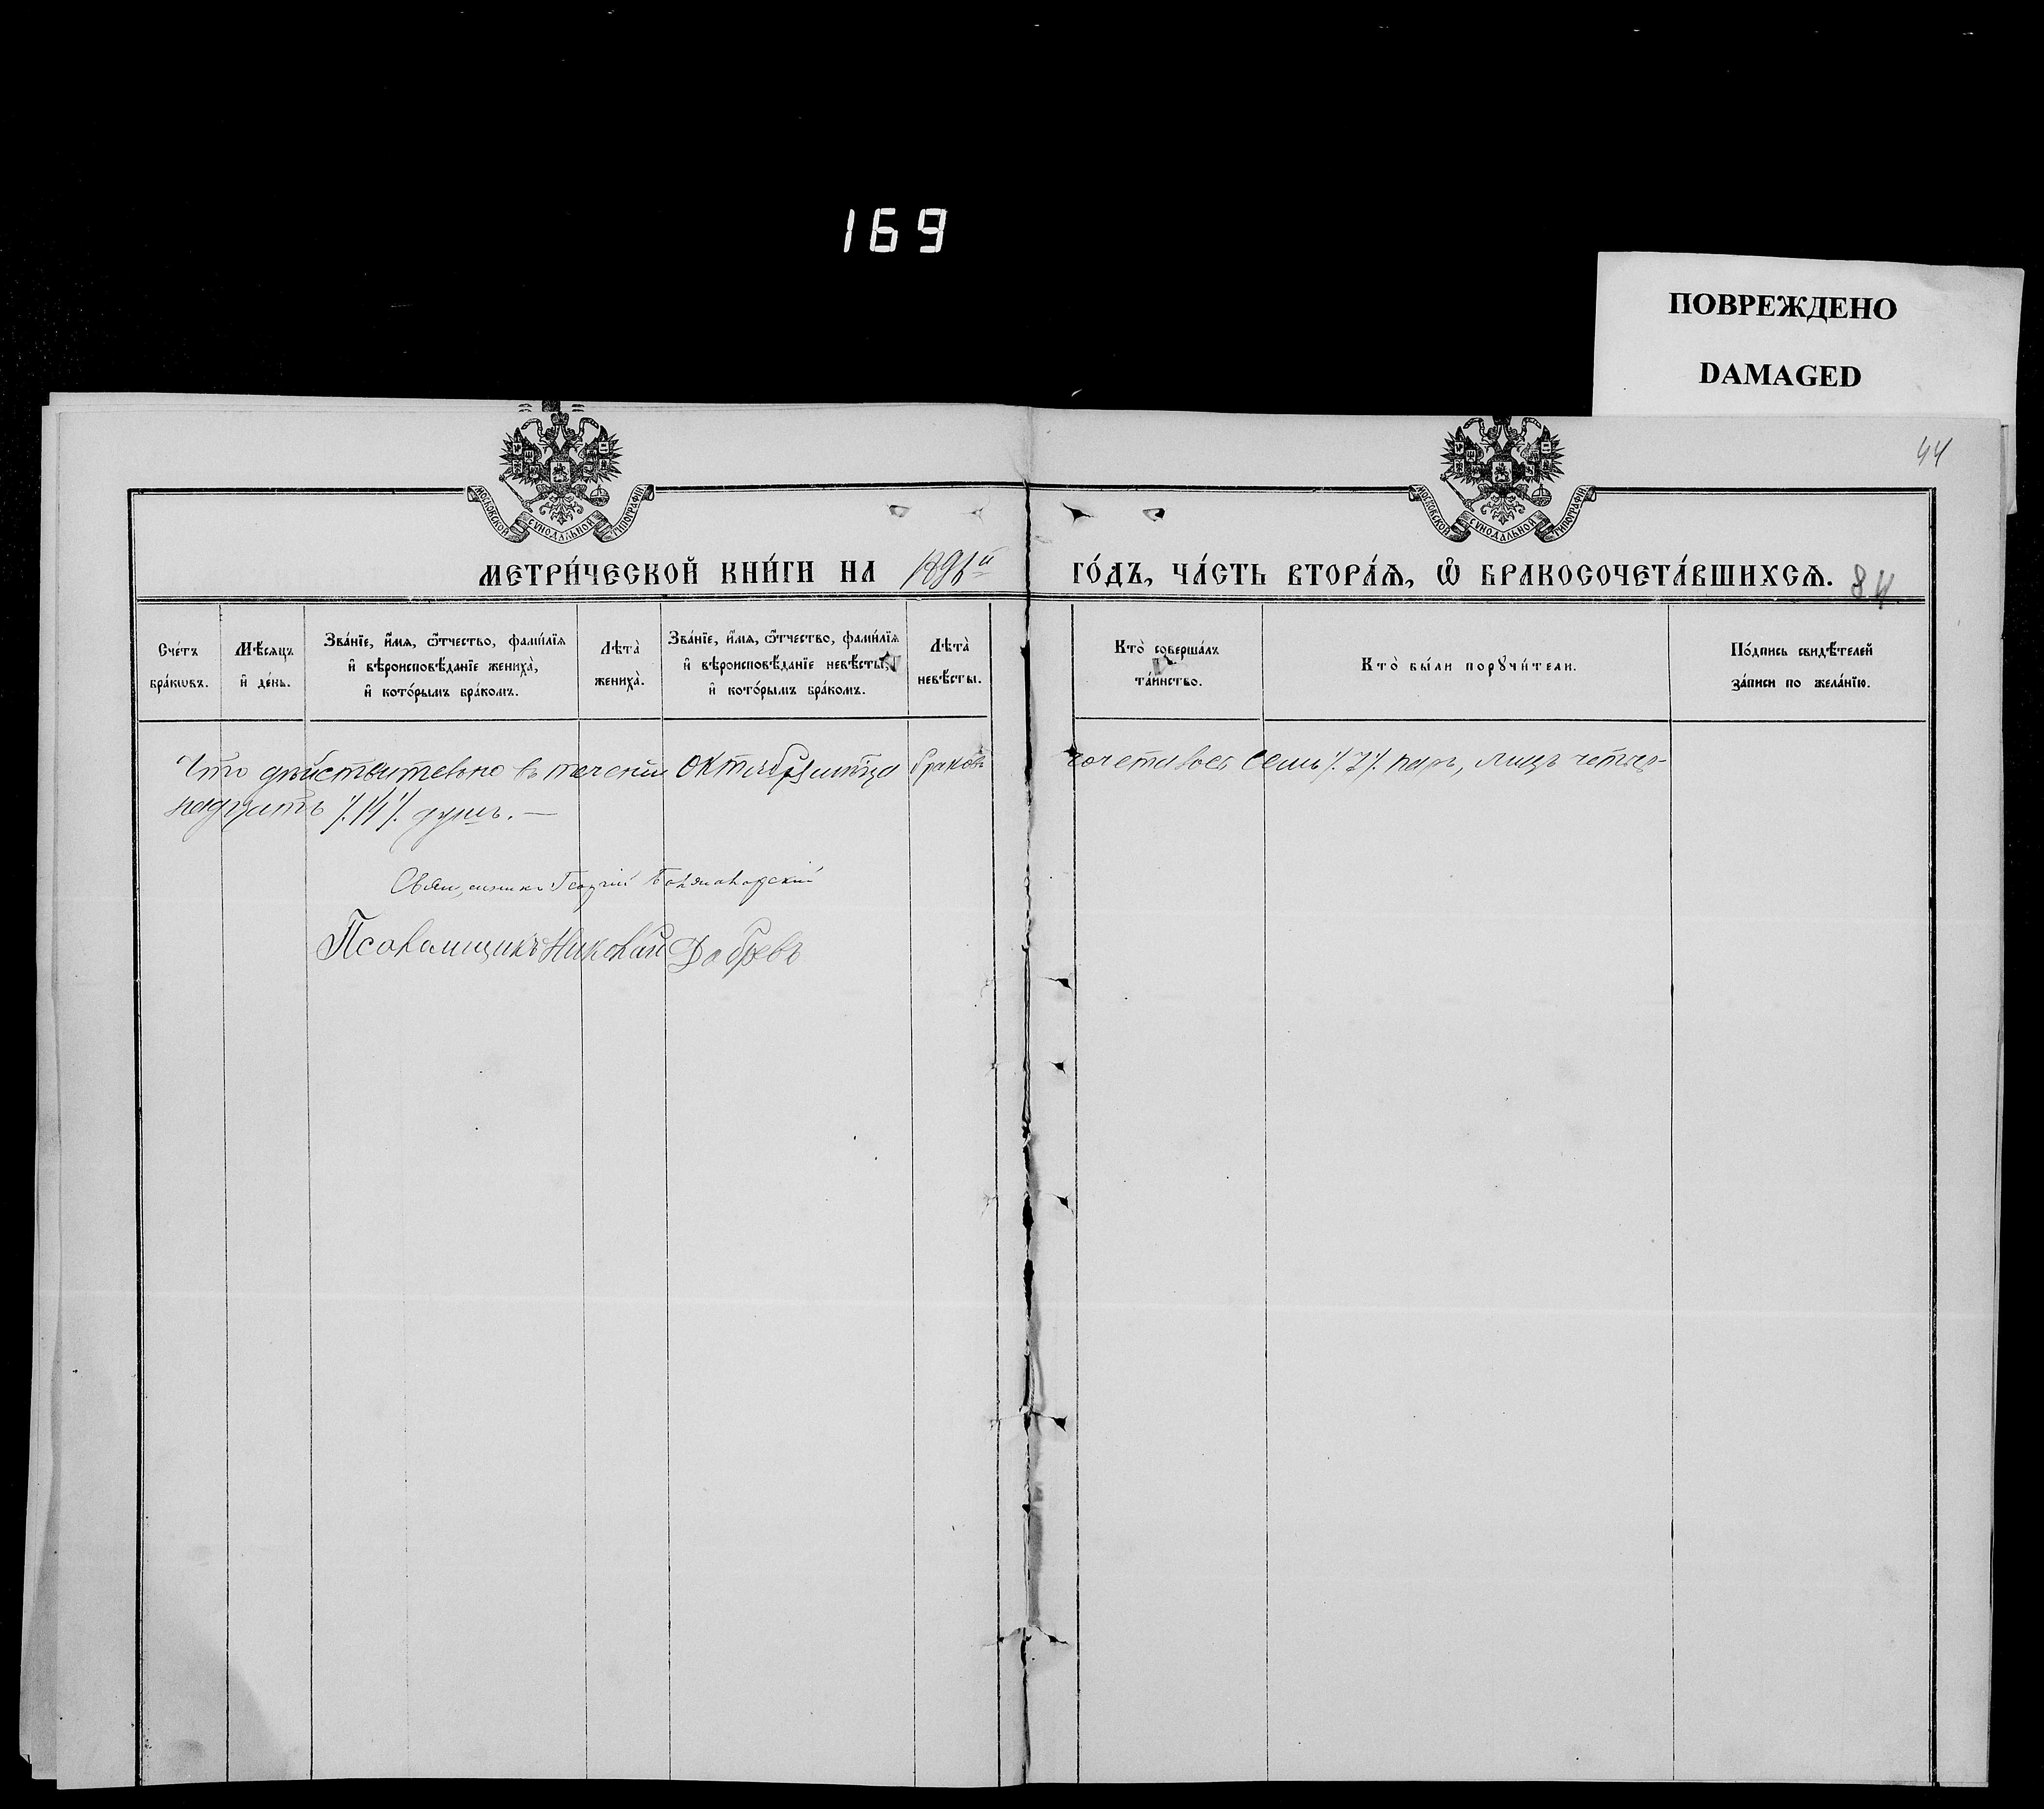 169
ПОВРЕЖДЕНО
DAMAGED
44
МОСКОВСКОЙ СУНОДАЛЬНОЙ ТИПОГРАФІИ
МОСКОВСКОЙ СУНОДАЛЬНОЙ ТИПОГРАФІИ
МЕТРИ́ЧЕСКОЙ КНИ́ГИ НА
ГО́ДЪ, ЧА́СТЬ ВТОРА́Ѧ, Ѽ БРАКОСОЧЕТА́ВШИХСѦ. 84
Сче́тъ
бра́кωвъ.
Мѣ́сяцъ
и҆ де́нь.
Зва́нїе, и҆́мя, ѻ҆́тчество, фамѝлїя
и҆ вѣроисповѣ́данїе жениха̀,
и҆ кото́рымъ бра́комъ.
Лѣта̀
жениха̀.
Зва́нїе, и҆́мя, ѻ҆́тчество, фамѝлїя
и҆ вѣроисповѣ́данїе невѣ́сты,
и҆ кото́рымъ бра́комъ.
Лѣта̀
невѣ́сты.
Кто̀ соверша́лъ
та́инство.
Кто̀ бы́ли порꙋчи́тели.
По́дпись свидѣ́телей
за́писи по жела́нїю.
Что дѣйствительно въ теченіи Октября мѣсяца браковъ сочеталось семь /.7/. паръ, лицъ четыр-
надцать /.14/. душъ. —
Священникъ Георгій
Псаломщикъ Николай Добревъ